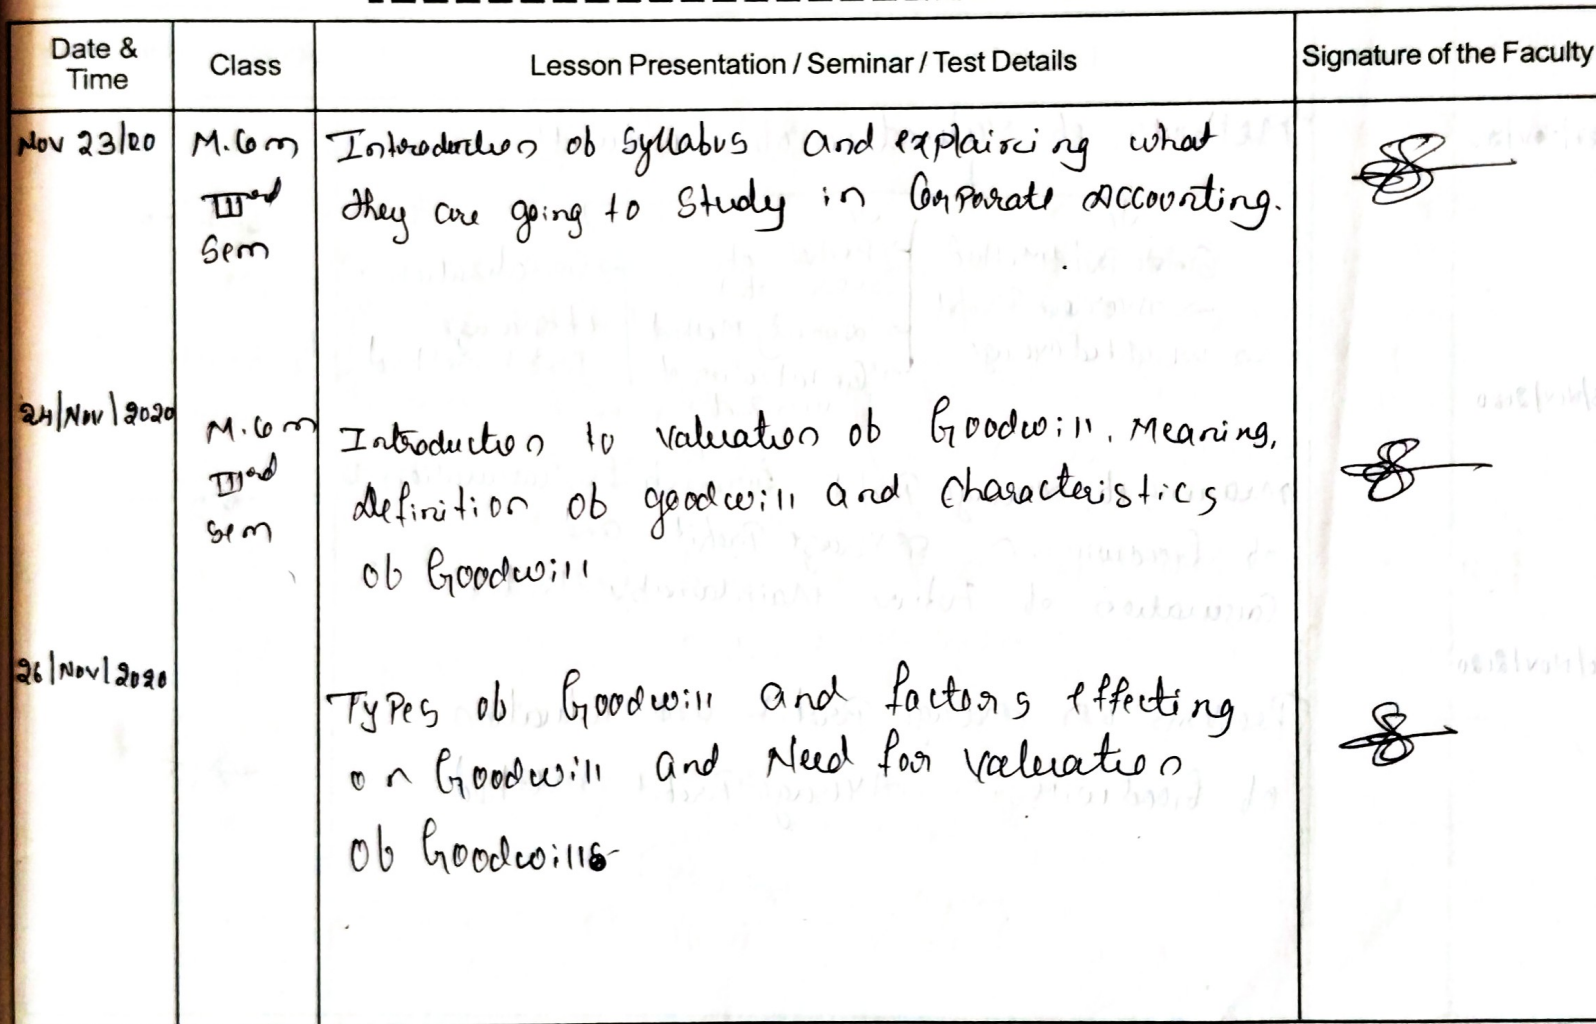 Date & Time
Class
Lesson Presentation / Seminar / Test Details
Signature of the Faculty
Nov 23/20
M.Com
IIIrd
Sem
Introduction of Syllabus and explaining what
they are going to study in Corporate Accounting.
24/Nov/2020
M.Com
IIIrd
Sem
Introduction to valuation of Goodwill, Meaning,
definition of goodwill and characteristics
of Goodwill
26/Nov/2020
Types of Goodwill and factors effecting
on Goodwill and Need for valuation
of Goodwills